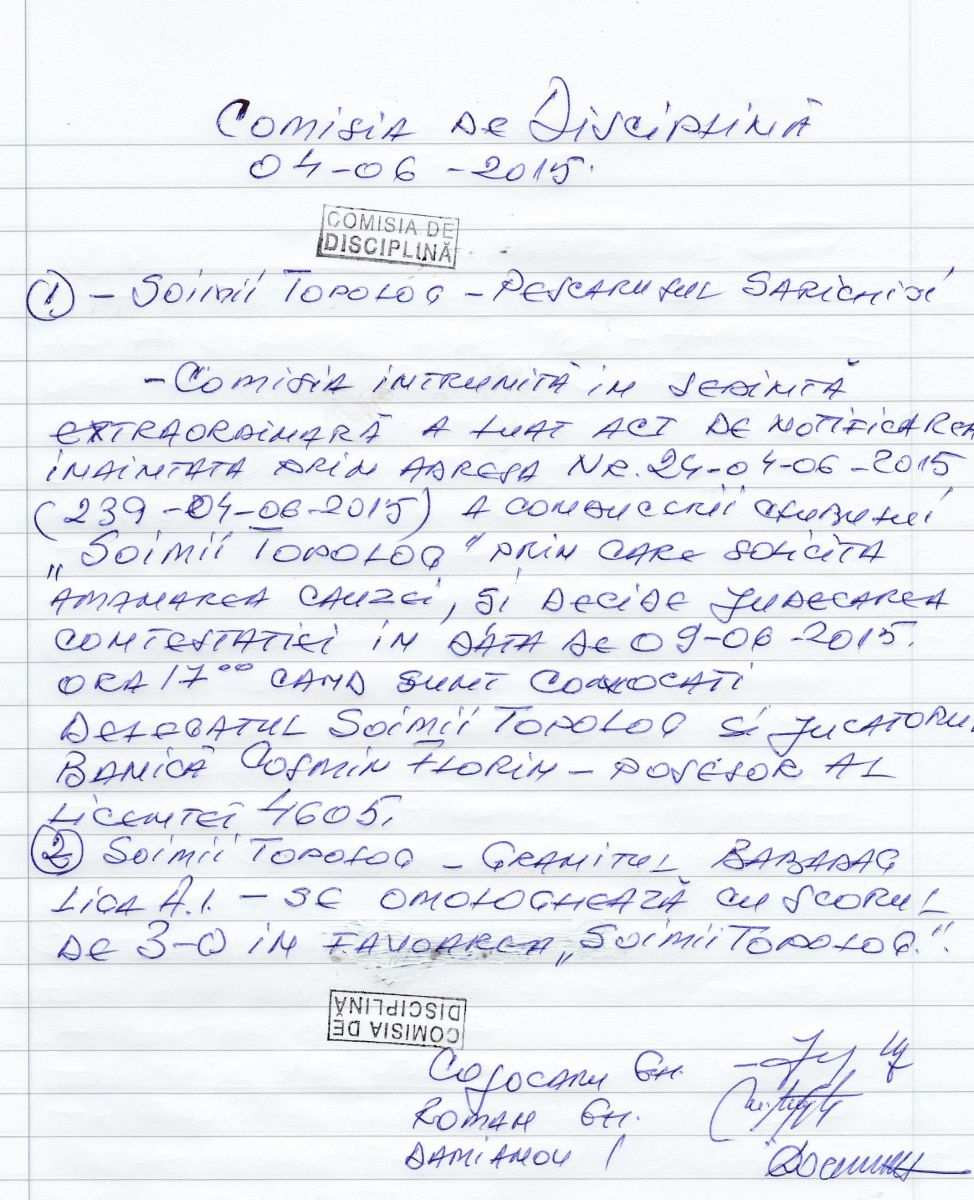 COMISIA DE DISCIPLINĂ
04-06-2015.
COMISIA DE
DISCIPLINĂ
① - SOIMII TOPOLOG - PESCARUSUL SARICHIOI
- COMISIA INTRUNITĂ IN SEDINTĂ
EXTRAORDINARĂ A LUAT ACT DE NOTIFICAREA
INAINTATA PRIN ADRESA NR. 24-04-06-2015
(239-04-06-2015) A CONDUCERII CLUBULUI
„SOIMII TOPOLOG" PRIN CARE SOLICITA
AMANAREA CAUZEI, ȘI DECIDE JUDECAREA
CONTESTATIEI IN DATA DE 09-06-2015.
ORA 17⁰⁰ CAND SUNT CONVOCATI
DELEGATUL SOIMII TOPOLOG SI JUCATORUL
BANICĂ COSMIN FLORIN - POSESOR AL
LICENTEI 4605.
② SOIMII TOPOLOG - GRANITUL BABADAG
LIGA A.I. - SE OMOLOGHEAZĂ CU SCORUL
DE 3-0 IN FAVOAREA „SOIMII TOPOLOG".
COMISIA DE
DISCIPLINĂ
COJOCARU GH. -
ROMAN GH.
DAMIANOV I